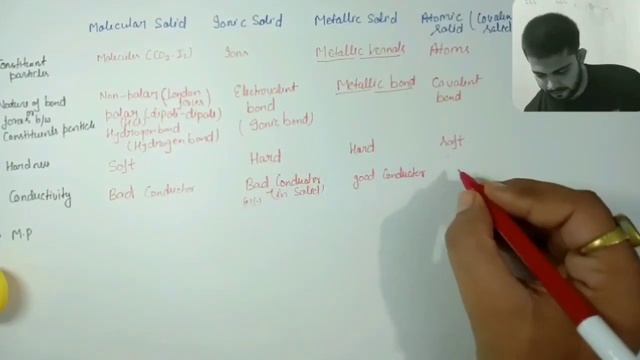 Molecular Solid Ionic Solid Metallic Solid Atomic (Covalent
Solid Solid
Constituent Molecules (CO2, I2) Ions Metallic kernals Atoms
particles
Nature of bond Non-polar (London Electrovalent Metallic bond Covalent
or forces) bond bond
forces b/w polar (dipole-dipole) (Ionic bond)
Constituents particle Hydrogen bond
(Hydrogen bond)
Hardness Soft Hard Hard Soft
Conductivity Bad Conductor Bad Conductor good Conductor
(in Solid)
M.P